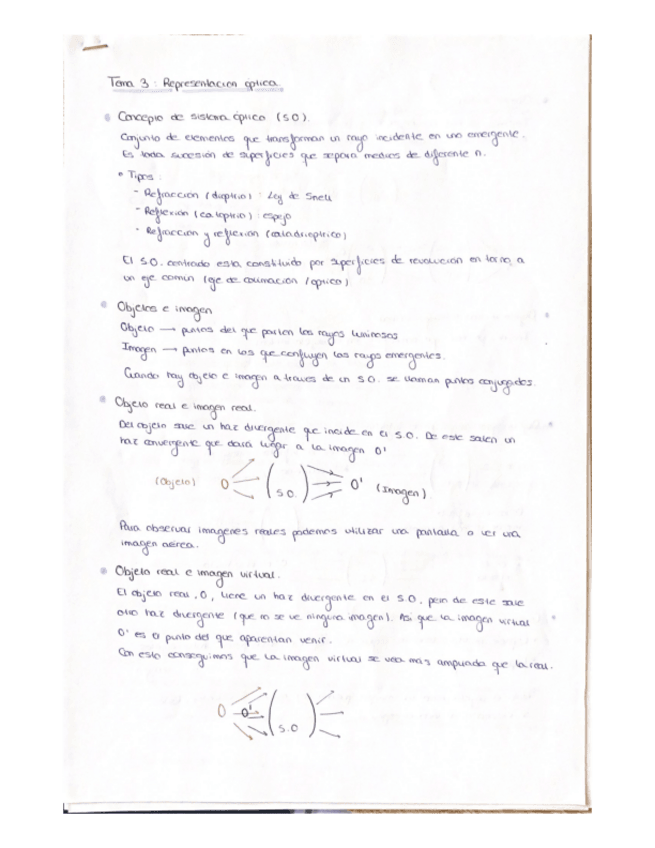 Tema 3: Representacion óptica.
Concepto de sistema óptico (SO).
Conjunto de elementos que transforman un rayo incidente en uno emergente.
Es toda sucesión de superficies que separa medios de diferente n.
Tipos:
- Refracción (dioptrio): Ley de Snell
- Reflexión (catoptrio): espejo
- Refracción y reflexión (catadrioptrico)
El S.O. centrado esta constituido por superficies de revolucion en torno a
un eje comun (eje de colimación / optico)
Objetos e imagen
Objeto → puntos del que parten los rayos luminosos
Imagen → puntos en los que confluyen los rayos emergentes.
Cuando hay objeto e imagen a traves de un S.O. se llaman puntos conjugados.
Objeto real e imagen real.
Del objeto sale un haz divergente que incide en el S.O. De este salen un
haz convergente que dará lugar a la imagen O'
(Objeto) O S.O. O' (Imagen)
Para observar imagenes reales podemos utilizar una pantalla o ver una
imagen aérea.
Objeto real e imagen virtual.
El objeto real, O, tiene un haz divergente en el S.O, pero de este sale
otro haz divergente (que no se ve ninguna imagen). Asi que la imagen virtual
O' es el punto del que aparentan venir.
Con esto conseguimos que la imagen virtual se vea mas ampliada que la real.
O O' S.O